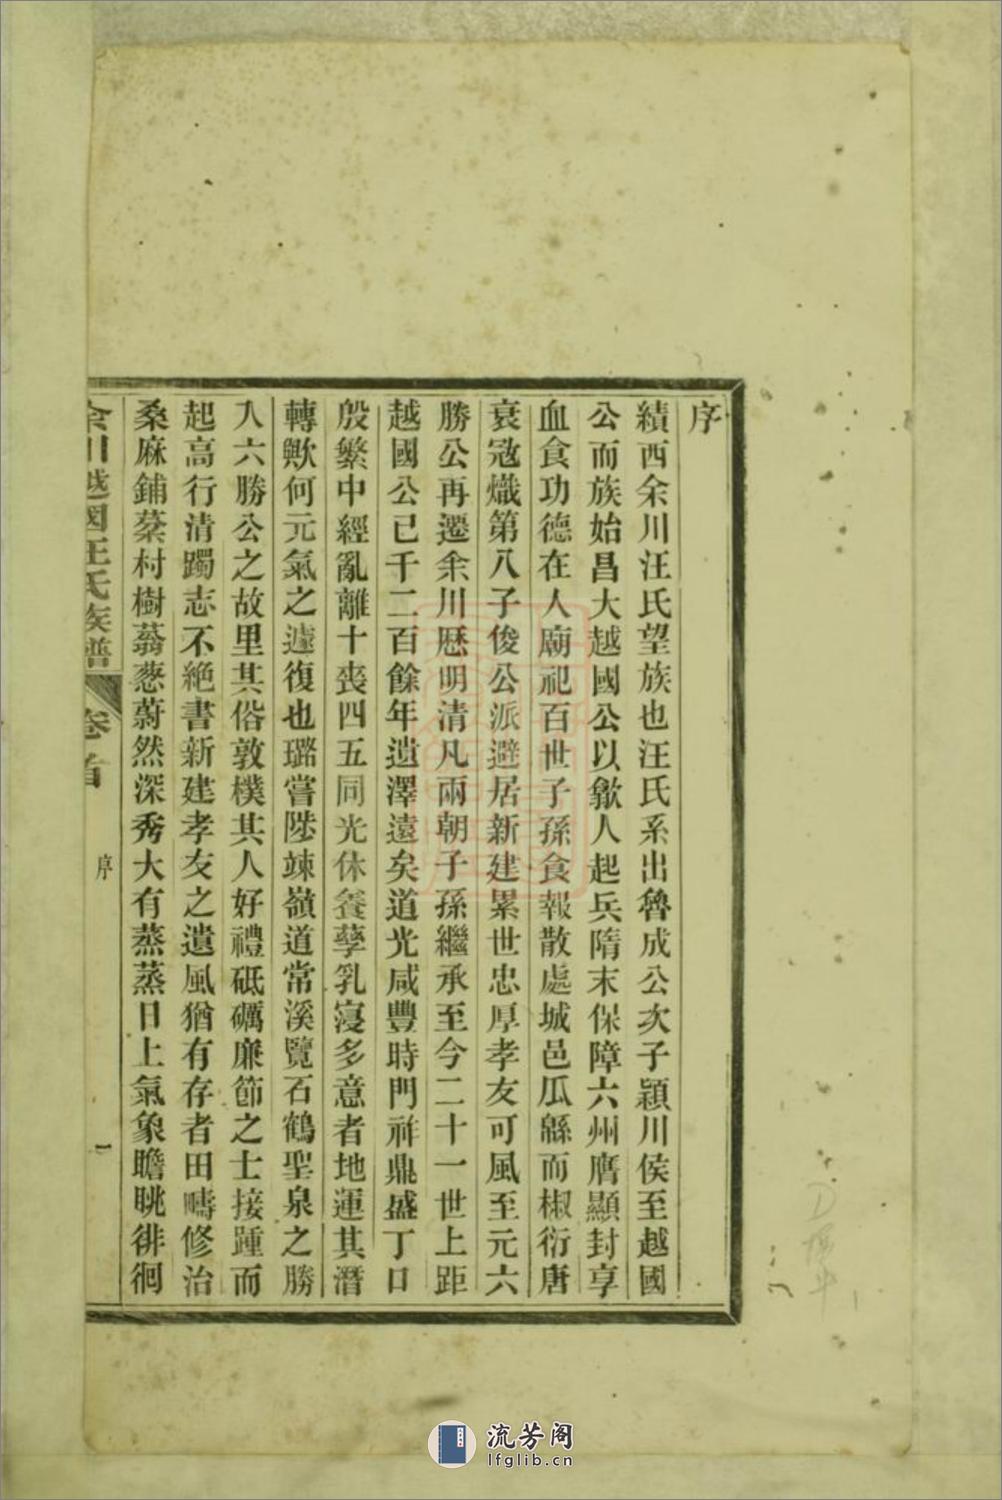 序
績西余川汪氏望族也汪氏系出魯成公次子穎川侯至越國
公而族始昌大越國公以歙人起兵隋末保障六州膺顯封享
血食功德在人廟祀百世子孫食報散處城邑瓜緜而椒衍唐
衰寇熾第八子俊公派避居新建累世忠厚孝友可風至元六
勝公再遷余川歷明清凡兩朝子孫繼承至今二十一世上距
越國公已千二百餘年遺澤遠矣道光咸豐時門祚鼎盛丁口
殷繁中經亂離十喪四五同光休養孳乳寖多意者地運其潛
轉歟何元氣之遽復也璐嘗陟竦嶺道常溪覽石鶴聖泉之勝
入六勝公之故里其俗敦樸其人好禮砥礪廉節之士接踵而
起高行清躅志不絶書新建孝友之遺風猶有存者田疇修治
桑麻鋪棻村樹蓊葱蔚然深秀大有蒸蒸日上氣象瞻眺徘徊
余川越國汪氏族譜 卷首 序 一
流芳阁
lfglib.cn